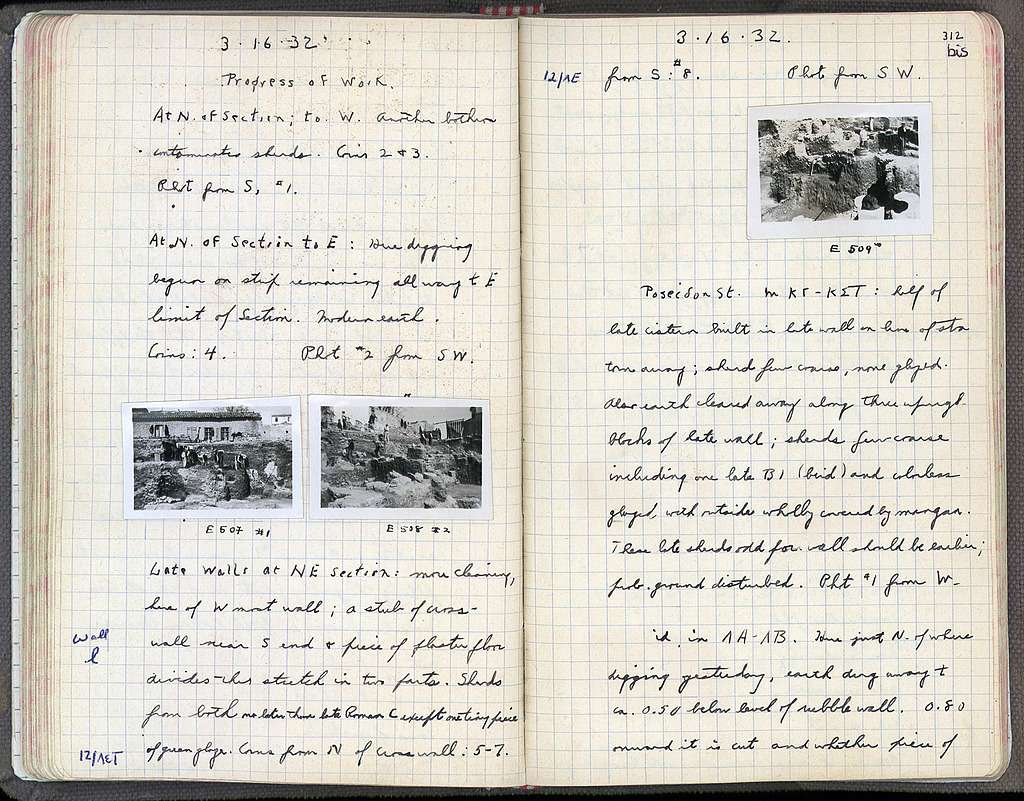 3·16·32
Progress of Work.
At N. of Section; to W. Another bothros
contaminated sherds. Coins 2 & 3.
Phot from S, #1.
At N. of Section to E: Have digging
begun on strip remaining all way to E
limit of Section. Modern earth.
Coins: 4. Phot #2 from SW.
E 507 #1
E 508 #2
Late Walls at NE Section: more cleaning,
here of W most wall; a stub of cross-
wall
l
wall near S end & piece of plaster floor
divides this stretch in two parts. Sherds
from both no later than late Roman C except one tiny piece
of green glaze. Coins from N of cross wall: 5-7.
12/ΛΣΤ
3·16·32.
312
bis
12/ΛΕ
from S: #8. Phot from SW.
E 509
Poseidon St. in ΚΓ-ΚΣΤ: half of
late cistern built in late wall on line of stoa
torn away; sherds few coarse, none glazed.
Also earth cleared away along three upright
blocks of late wall; sherds few coarse
including one late B1 (bird) and colorless
glazed, with outside wholly covered by mangan.
These late sherds odd for wall should be earlier;
prob. ground disturbed. Phot #1 from W.
id. in ΛΑ-ΛΒ. Here just N. of where
digging yesterday, earth dug away to
ca. 0.50 below level of rubble wall. 0.80
onward it is cut and whether piece of